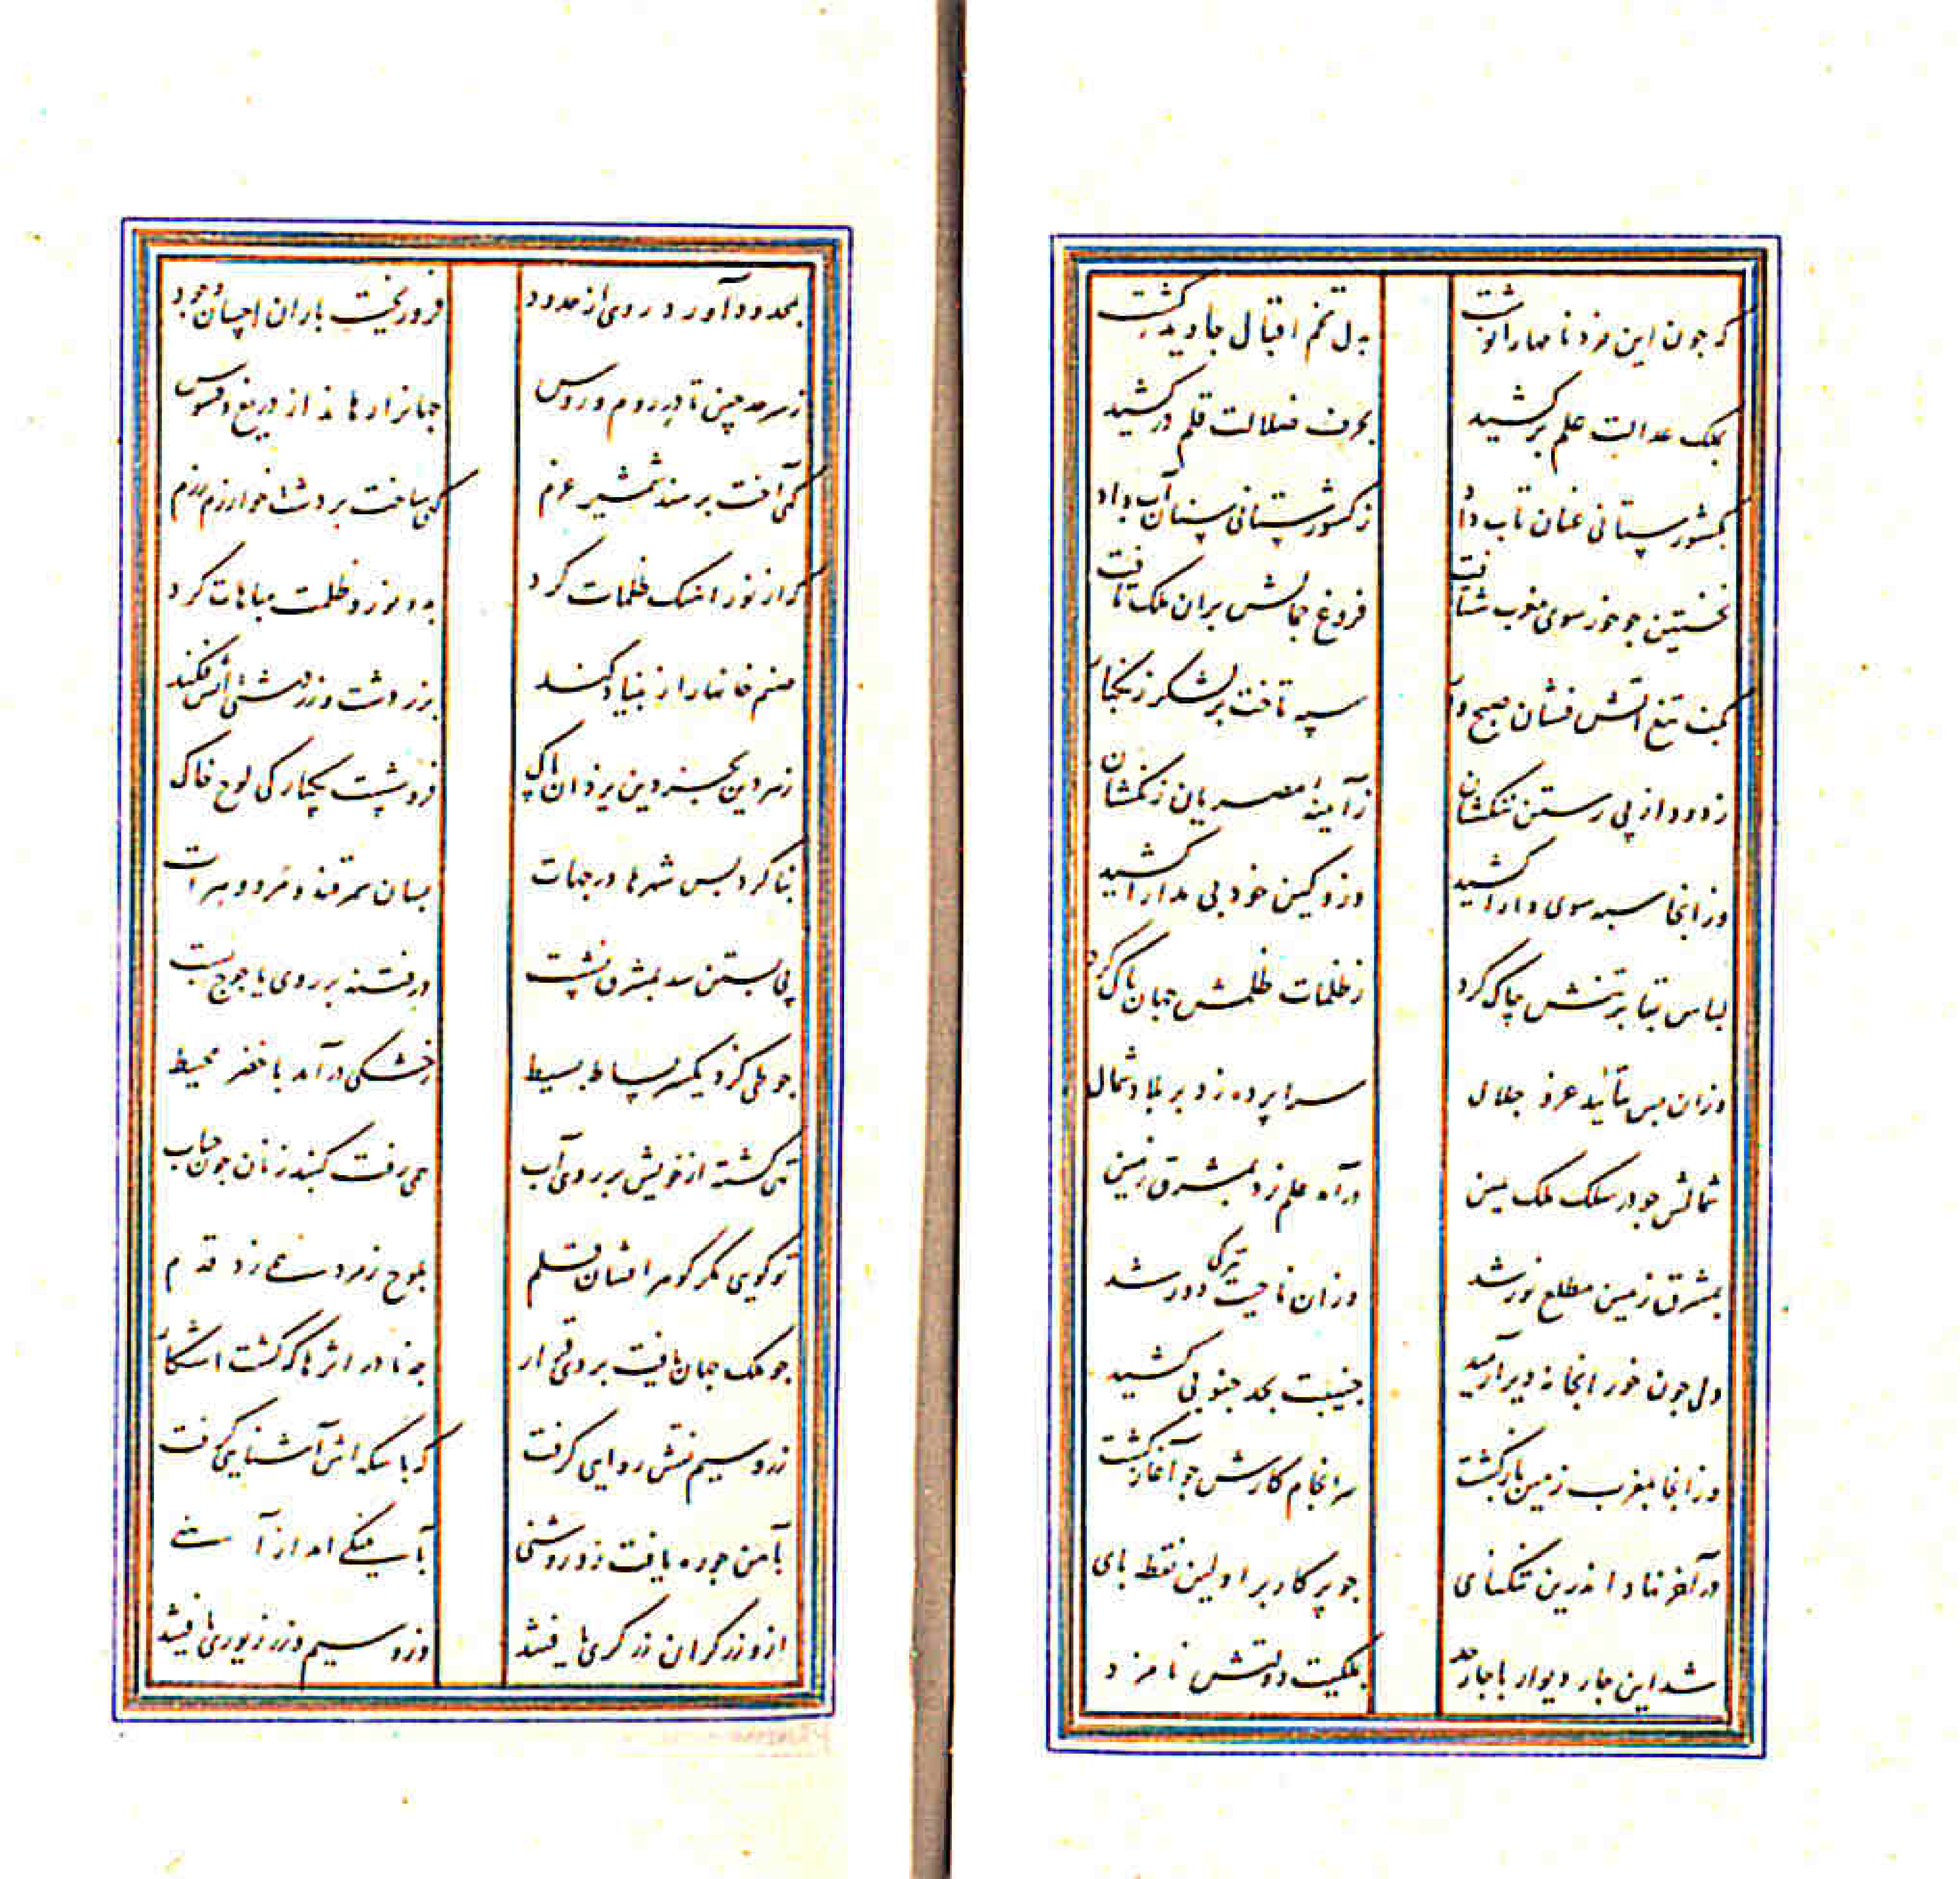 که جون این خردنامها را نوشت بدل تخم اقبال جاوید کشت
بملک عدالت علم برکشید بحرف ضلالت قلم درکشید
بکشورستانی عنان تاب داد ز کشورستانی سنان آب داد
نخستین جو خور سوی مغرب شتافت فروغ جمالش بران ملک تافت
بکف تیغ آتش فشان صبح وار سپه تاخت بر لشکر زنکبار
زدود از پی رستن تنکشان ز آیینه مصریان زنکشان
وز انجا سپه سوی دارا کشید وزو کین خود بی مدارا کشید
لباس بقا بر تنش جاک کرد ز ظلمات ظلمش جهان پاک کرد
وزان پس بتأئید عز و جلال سراپرده زد بر بلاد شمال
شمالش جو در سلک ملک یمین درآمد علم زد بمشرق زمین
بمشرق زمین مطلع نور شد وزان ناحیت تیرکی دور شد
ولی جون خور انجا نه دیر آرمید جنیبت بحد جنوبی کشید
وز انجا بمغرب زمین بازکشت سرانجام کارش جو آغاز کشت
در آخر نهاد اندرین تنکنای جو پرکار بر اولین نقطه پای
شد این جار دیوار با جار حد بملکیت دولتش نامزد
بمحدود آورد روی از حدود فرو ریخت باران احسان وجود
ز سرحد چین تا در روم و روس جهانرا رهاند از دریغ و فسوس
کهی آخت بر هند شمشیر عزم کهی ساخت بر دشت خوارزم رزم
کز از نور اهنک ظلمات کرد بدو نور و ظلمت مباهات کرد
صنم خانها را ز بنیاد کند بزردشت و زردشتی آتش فکند
ز هر دین بجز دین یزدان پاک فروشست یکبارکی لوح خاک
بنا کرد بس شهرها در جهات بسان سمرقند و مرو و هرات
پی بستن سد بمشرق نشست در فتنه بر روی یاجوج بست
جو طی کرد یکسر بساط بسیط ز خشکی درآمد با خضر محیط
تهی کشته از خویش بر روی آب همی رفت کنبد زنان جون حباب
تو کویی مکر کوهر افشان قلم بلوح زمرد همی زد قدم
جو ملک جهان یافت بر وی قرار جه نادر اثرها که کشت آشکار
زر و سیم نقش روایی کرفت که با سکه اش آشنایی کرفت
بآهن جو ره یافت زو روشنی بآیینکی امد از آهنی
ازو زرکران زرکری یافتند وزو سیم و زر زیوری یافتند